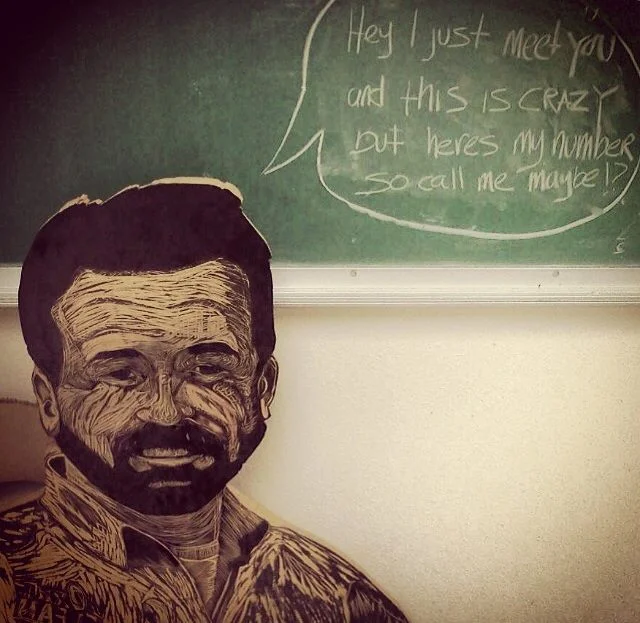 Hey I just meet you
and this is CRAZY
but heres my number
so call me maybe!?